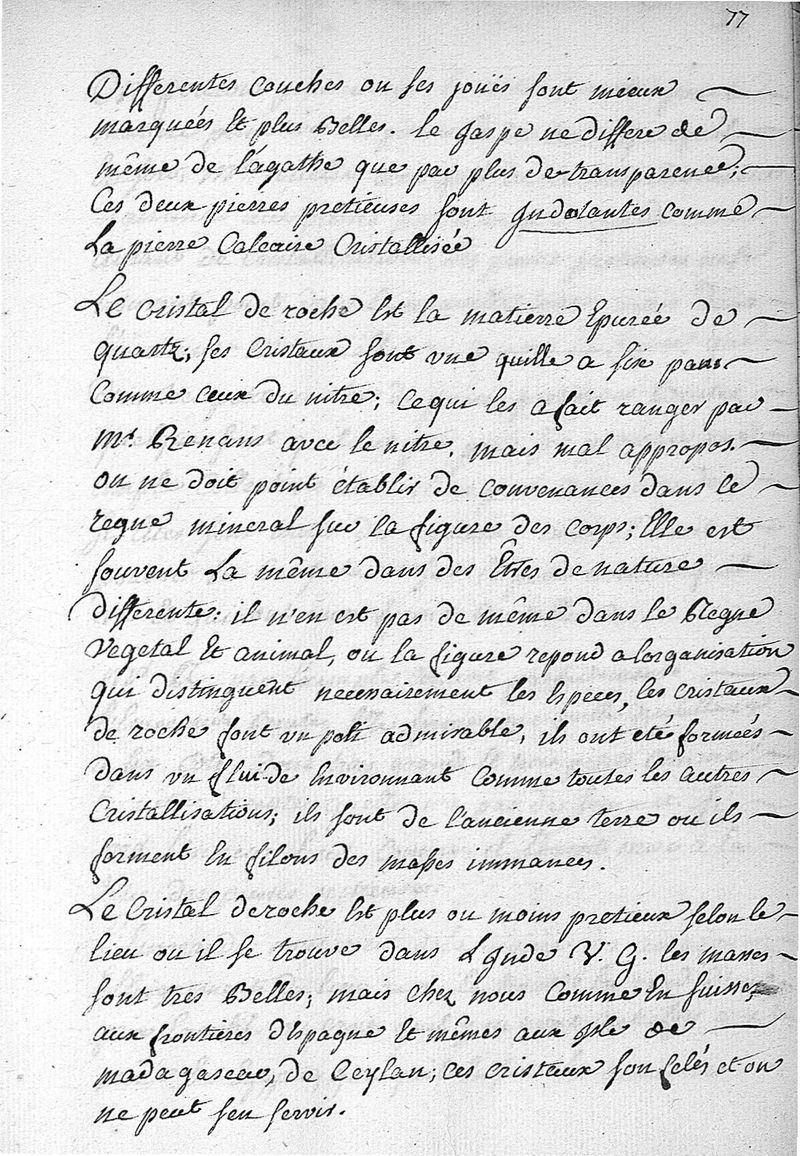 77
Differentes couches ou ses jouës sont mieux
marqueés Et plus Belles. le jaspe ne differe de
même de l'agathe que par plus de transparence;
Ces deux pierres pretieuses sont comme
La pierre Calcaire Cristallisée
Le cristal de roche Est la matierre Epureé de
quartz; ses Cristaux sont une quille a six pans
Comme ceux du nitre; ce qui les a fait ranger par
Mr. avec le nitre. mais mal appropos.
on ne doit point établir de convenances dans le
regne mineral sur la figure des corps; Elle est
souvent La même dans des Êtres de nature
differente: il n'en est pas de même dans le Regne
Vegetal Et animal, ou la figure repond a lorganisation
qui distinguent necessairement les Especes, les cristaux
de roche sont un poli admirable, ils ont eté formeés
dans un fluide Environnant comme toutes les autres
Cristallisations; ils sont de l'ancienne terre ou ils
forment En filons des masses immances.
Le Cristal de roche Est plus ou moins pretieux selon le
lieu ou il se trouve dans L'Jnde V. G. les masses
sont tres Belles; mais chez nous Comme En suisse,
aux frontières d'Espagne Et mêmes aux Jsle de
madagascar, de Ceylan; ces cristaux son felés et on
ne peut sen servir.